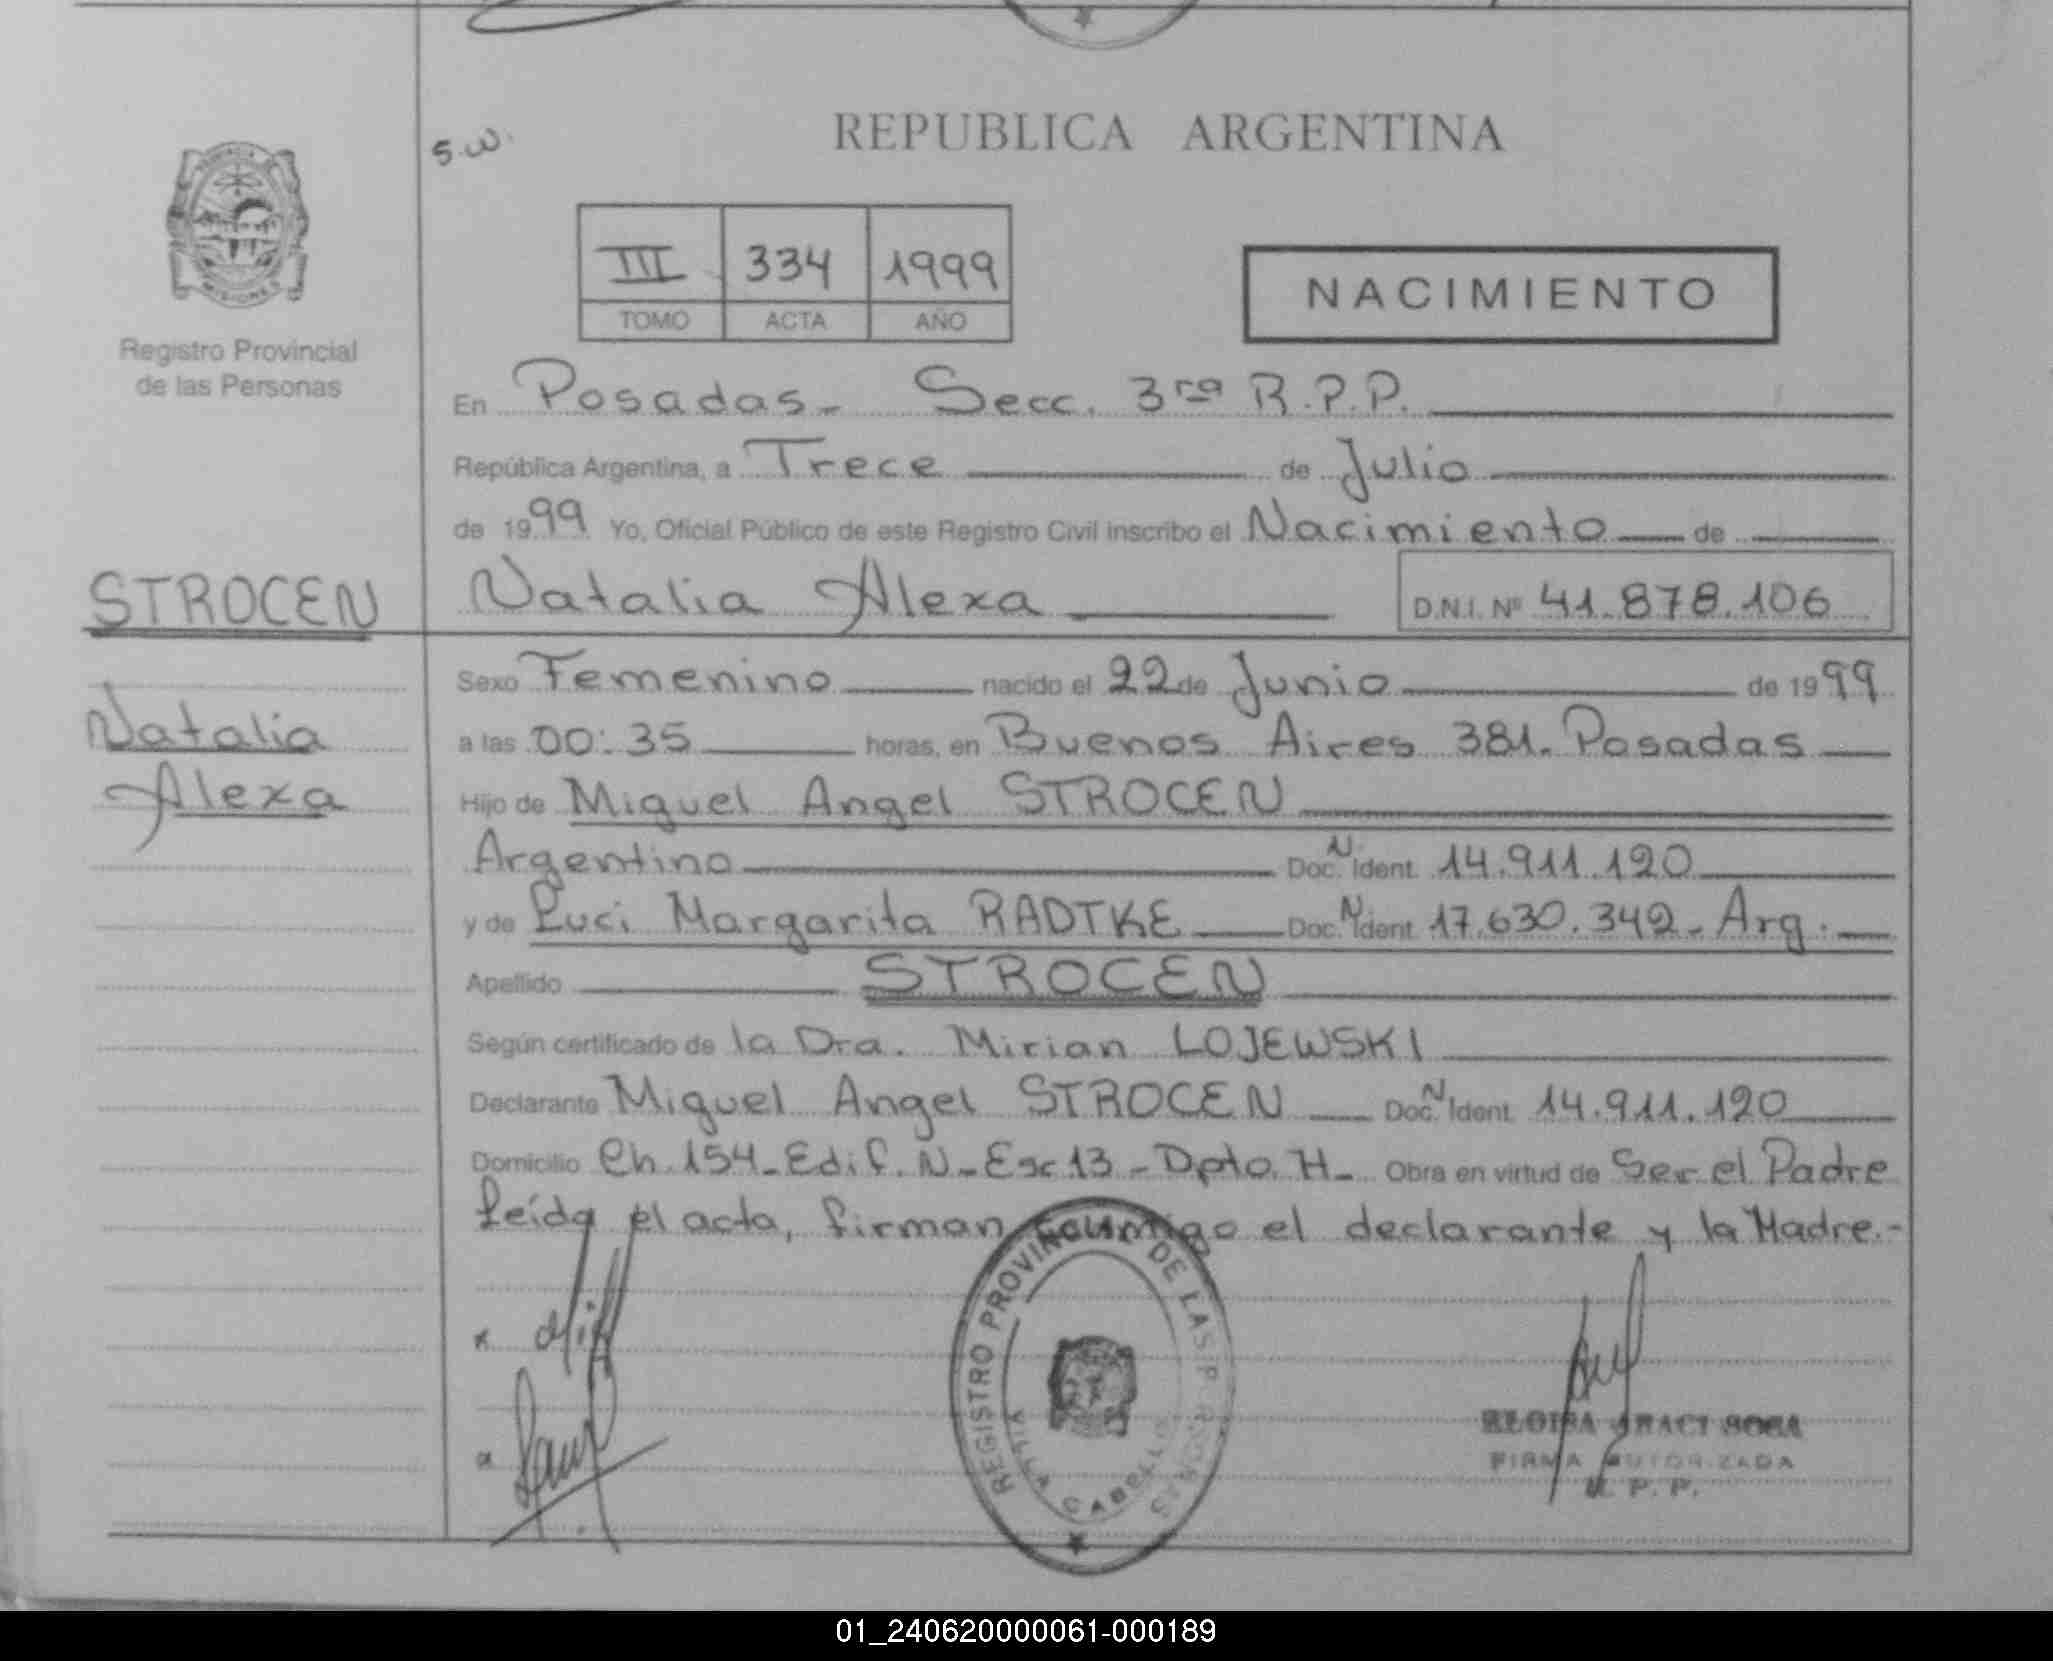 REPUBLICA ARGENTINA
S.W.
PROVINCIA DE
MISIONES
Registro Provincial
de las Personas
III 334 1999
TOMO ACTA AÑO
NACIMIENTO
En Posadas- Secc. 3ra R.P.P.
República Argentina, a Trece de Julio
de 1999 Yo, Oficial Público de este Registro Civil inscribo el Nacimiento de
STROCEN
Natalia Alexa D.N.I. Nº 41.878.106
Natalia
Alexa
Sexo Femenino nacido el 22 de Junio de 1999
a las 00:35 horas, en Buenos Aires 381. Posadas
Hijo de Miguel Angel STROCEN
Argentino Doc. N. Ident. 14.911.120
y de Luci Margarita RADTKE Doc. N. Ident. 17.630.342- Arg.
Apellido STROCEN
Según certificado de la Dra. Mirian LOJEWSKI
Declarante Miguel Angel STROCEN Doc. N. Ident. 14.911.120
Domicilio Ch. 154- Edif. N- Esc 13 - Dpto. H- Obra en virtud de Ser el Padre
Leída el acta, firman conmigo el declarante y la Madre.-
REGISTRO PROVINCIAL DE LAS PERSONAS
VILLA CABELLO
ELOISA ARACI SOSA
FIRMA AUTORIZADA
R. P. P.
01_240620000061-000189